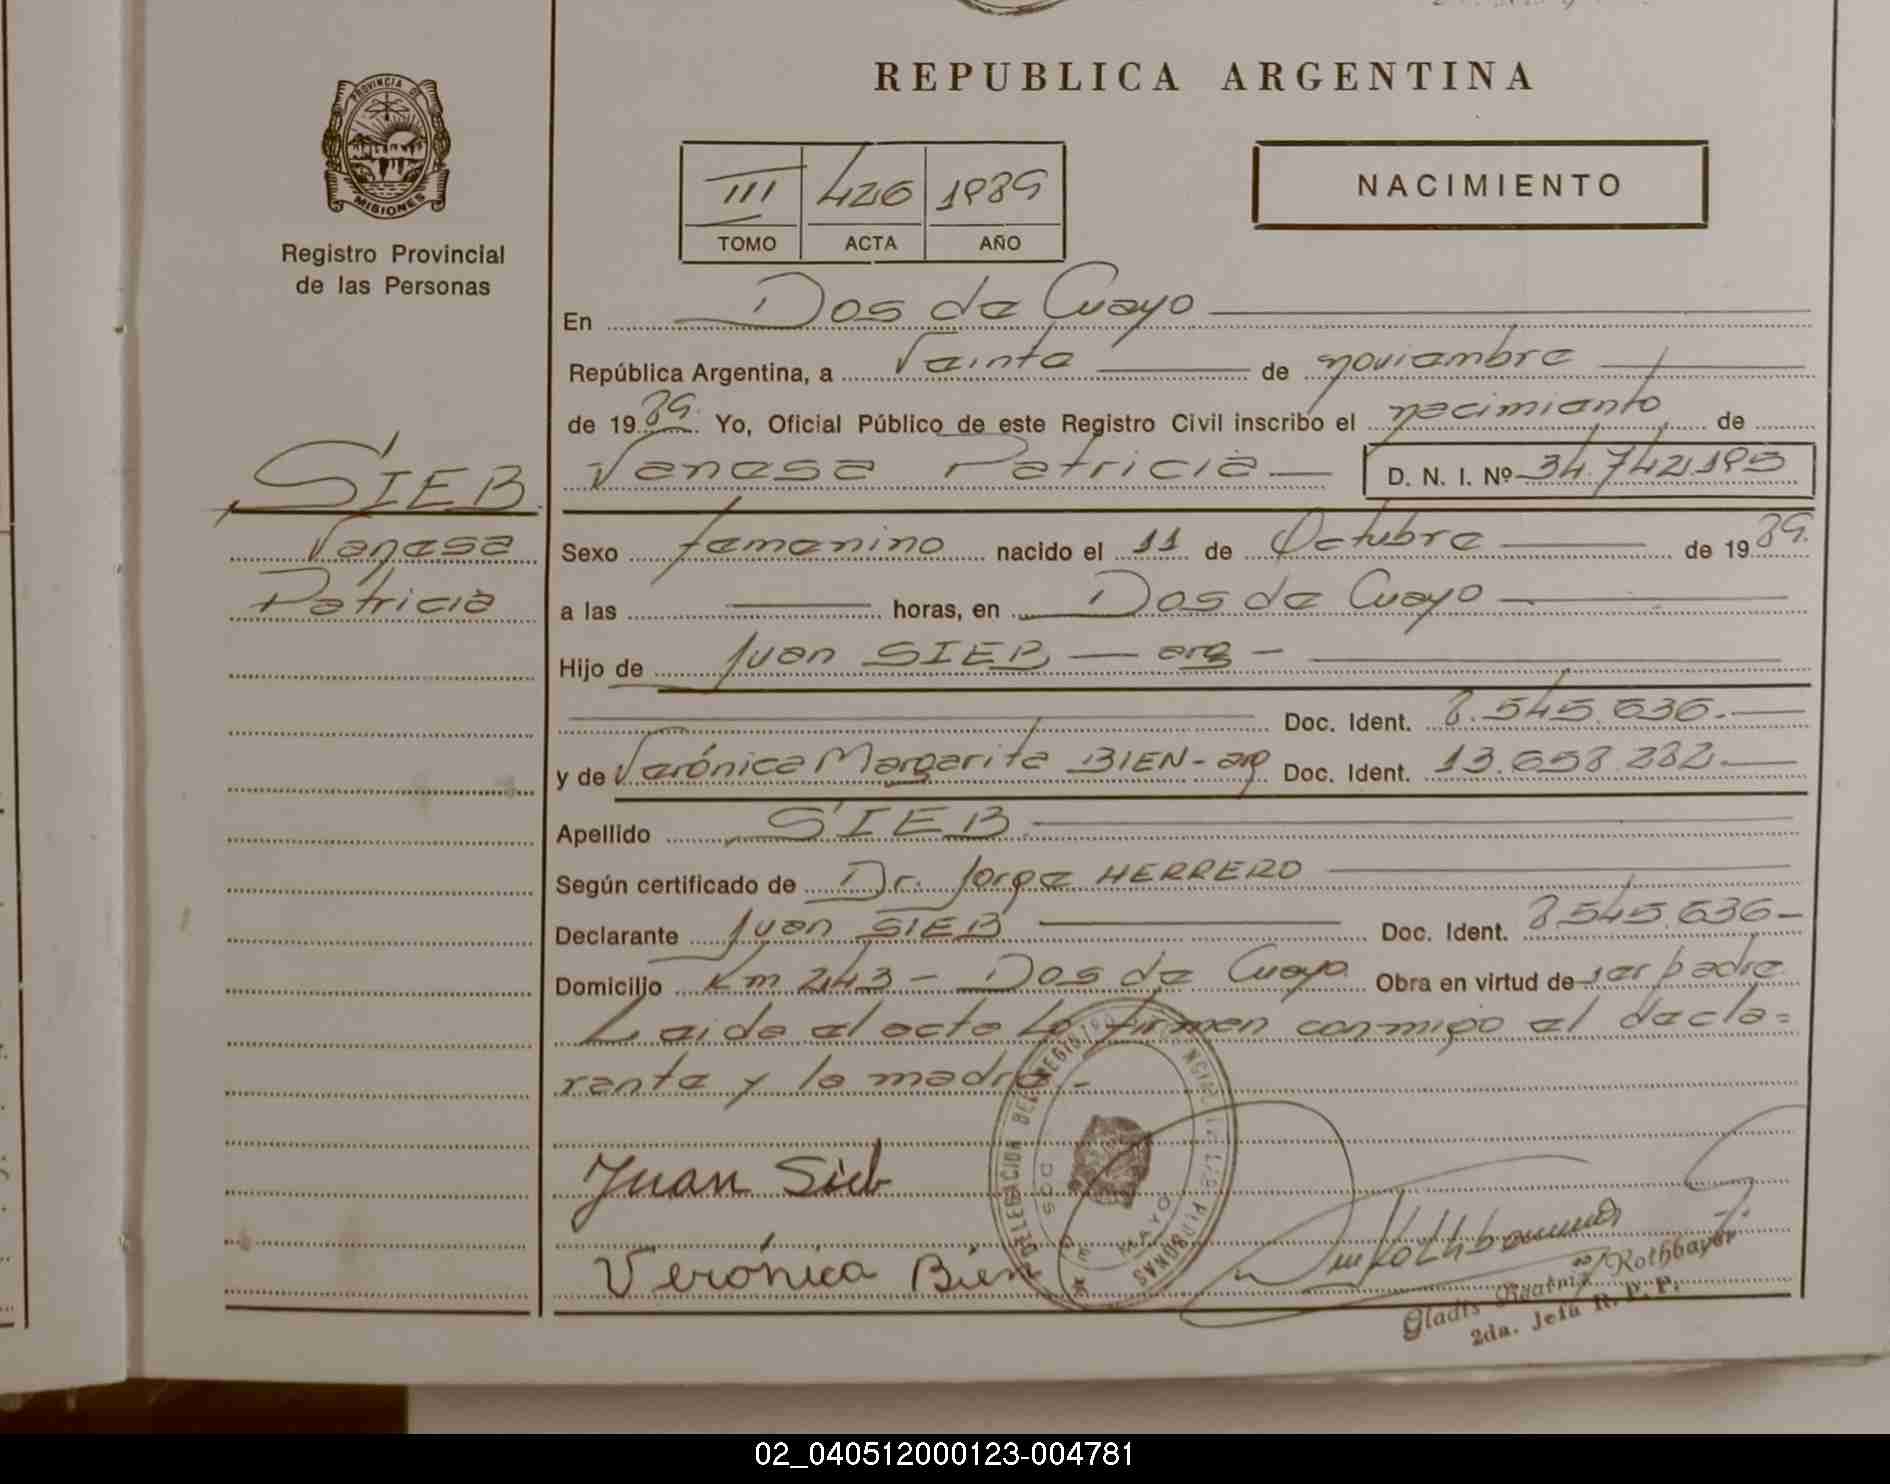 REPUBLICA ARGENTINA
PROVINCIA DE
MISIONES
Registro Provincial
de las Personas
III 426 1989
TOMO ACTA AÑO
NACIMIENTO
En Dos de Mayo
República Argentina, a Veinte de noviembre
de 1989. Yo, Oficial Público de este Registro Civil inscribo el nacimiento de
Vanesa Patricia D. N. I. Nº 34.742.195
SIEB
Vanesa
Patricia
Sexo femenino nacido el 11 de Octubre de 1989.
a las horas, en Dos de Mayo
Hijo de Juan SIEB - arg -
Doc. Ident. 8.545.636.-
y de Verónica Margarita BIEN - arg Doc. Ident. 13.658.282.-
Apellido SIEB
Según certificado de Dr. Jorge HERRERO
Declarante Juan SIEB Doc. Ident. 8.545.636-
Domicilio Km 243 - Dos de Mayo Obra en virtud de ser padre
Leida el acta la firman conmigo el decla=
rante y la madre.-
DELEGACION DEL REGISTRO PROVINCIAL DE LAS PERSONAS
DOS DE MAYO
Juan Sieb
Verónica Bien
Gladis Rothbauer
2da. Jefa R. P. P.
02_040512000123-004781